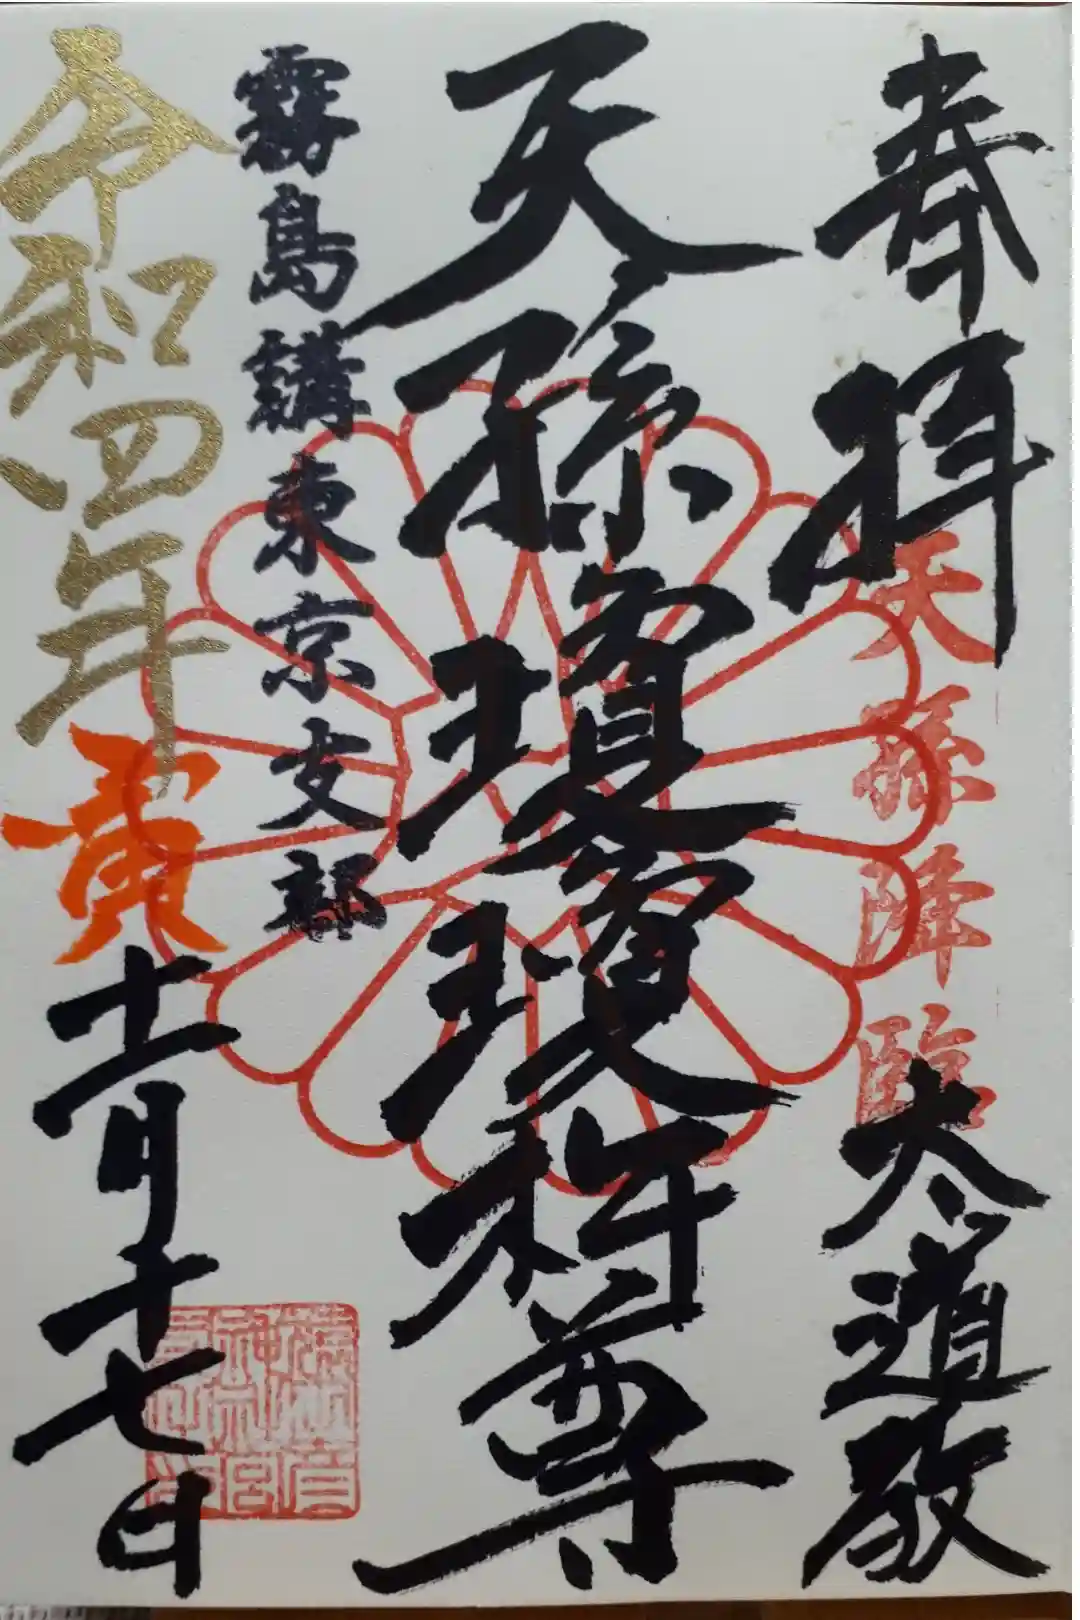 奉拝
天孫降臨
大道教
天孫瓊瓊杵尊
霧島講東京支部
令和四年寅十一月十七日